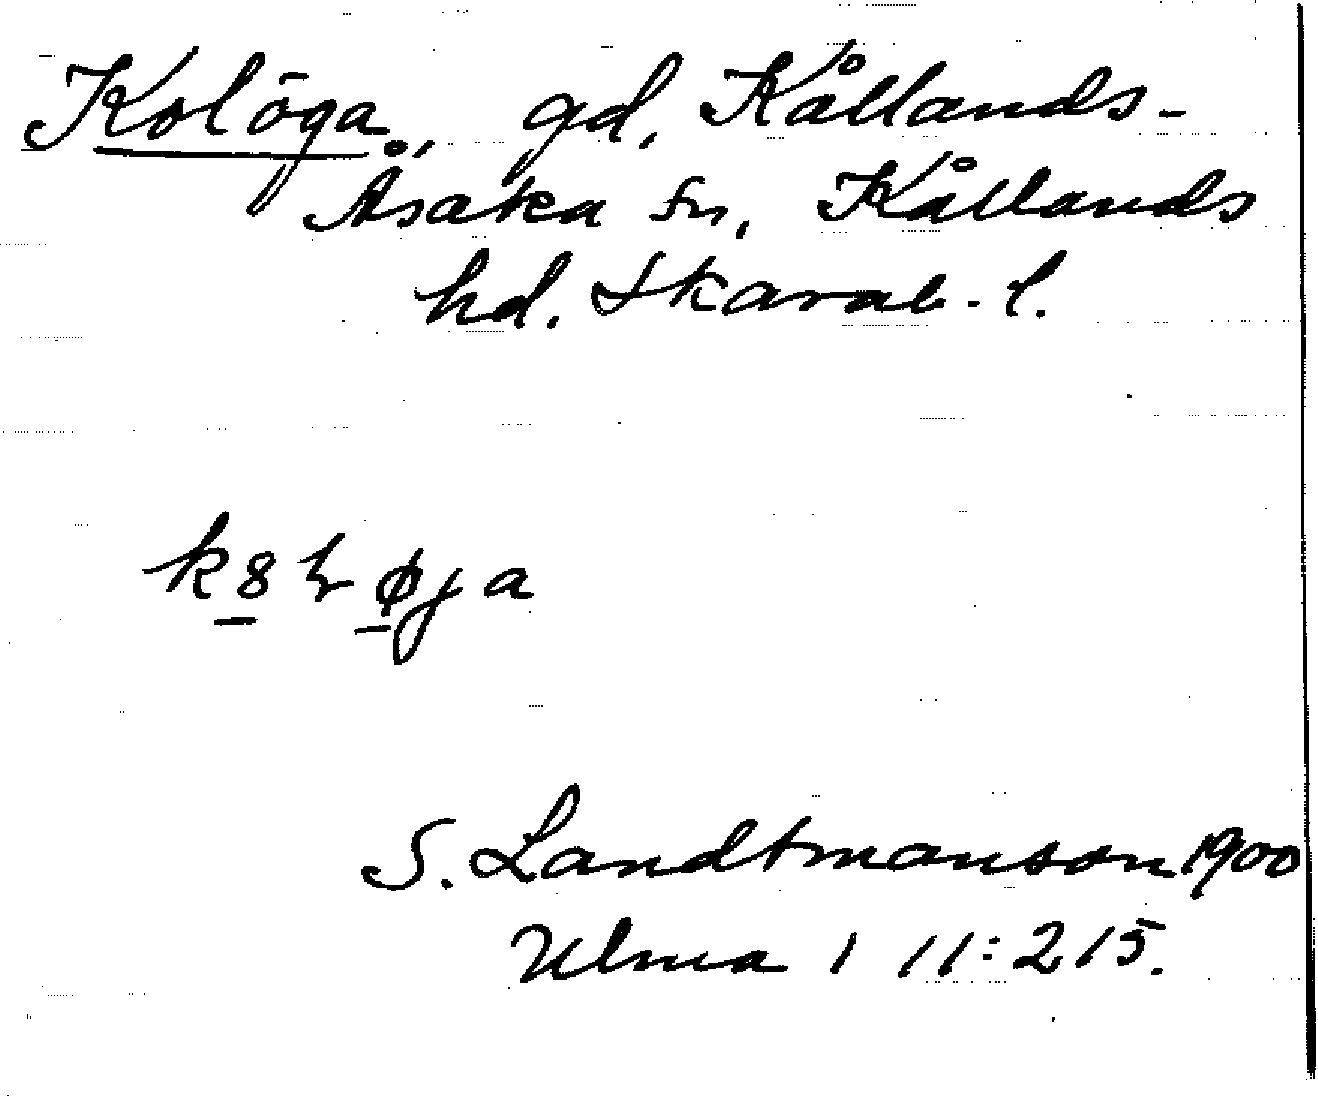 Kolöga, gd, Kållands-
Åsaka sn, Kållands
hd. Skarab. l.
k8løja
S. Landtmanson 1900
Ulma 1 11:215.